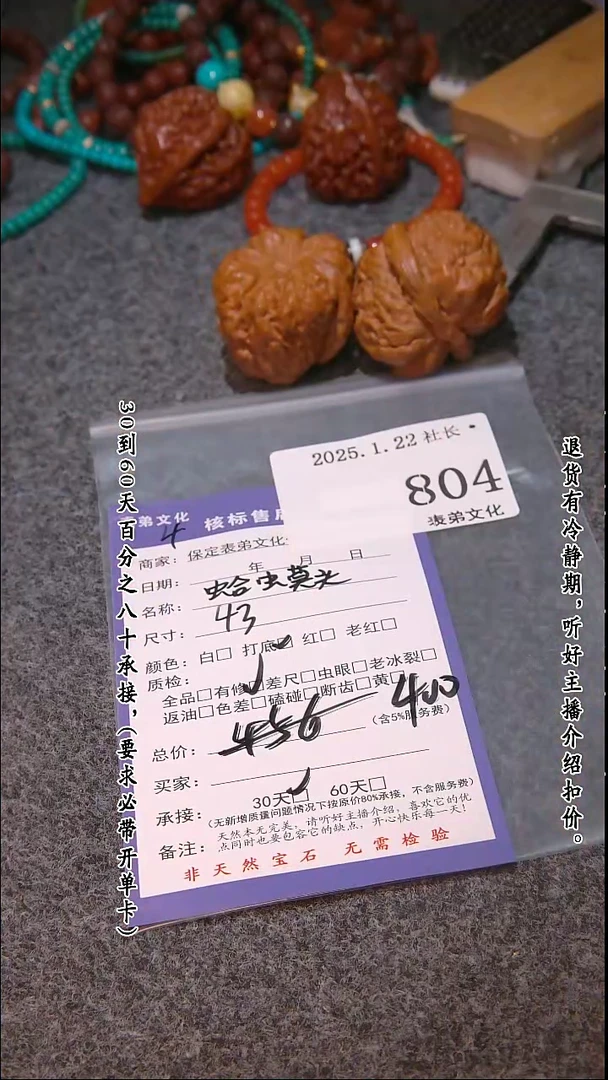 2025.1.22 社长
804
表弟文化
弟文化 核标售后
4
商家: 保定表弟文化
日期: 年 月 日
名称: 蛤虫莫头
尺寸: 43
颜色: 白□ 打底□ 红□ 老红□
质检:
全品□有修□差尺□虫眼□老冰裂□
返油□色差□磕碰□断齿□黄□
总价: 456 400 (含5%服务费)
买家:
承接: 30天□ 60天□
(无新增质量问题情况下按原价80%承接,不含服务费)
备注: 天然本无完美,请听好主播介绍,喜欢它的优
点同时也要包容它的缺点,开心快乐每一天!
非天然宝石 无需检验
30到60天百分之八十承接,(要求必带开单卡)
退货有冷静期,听好主播介绍扣价。